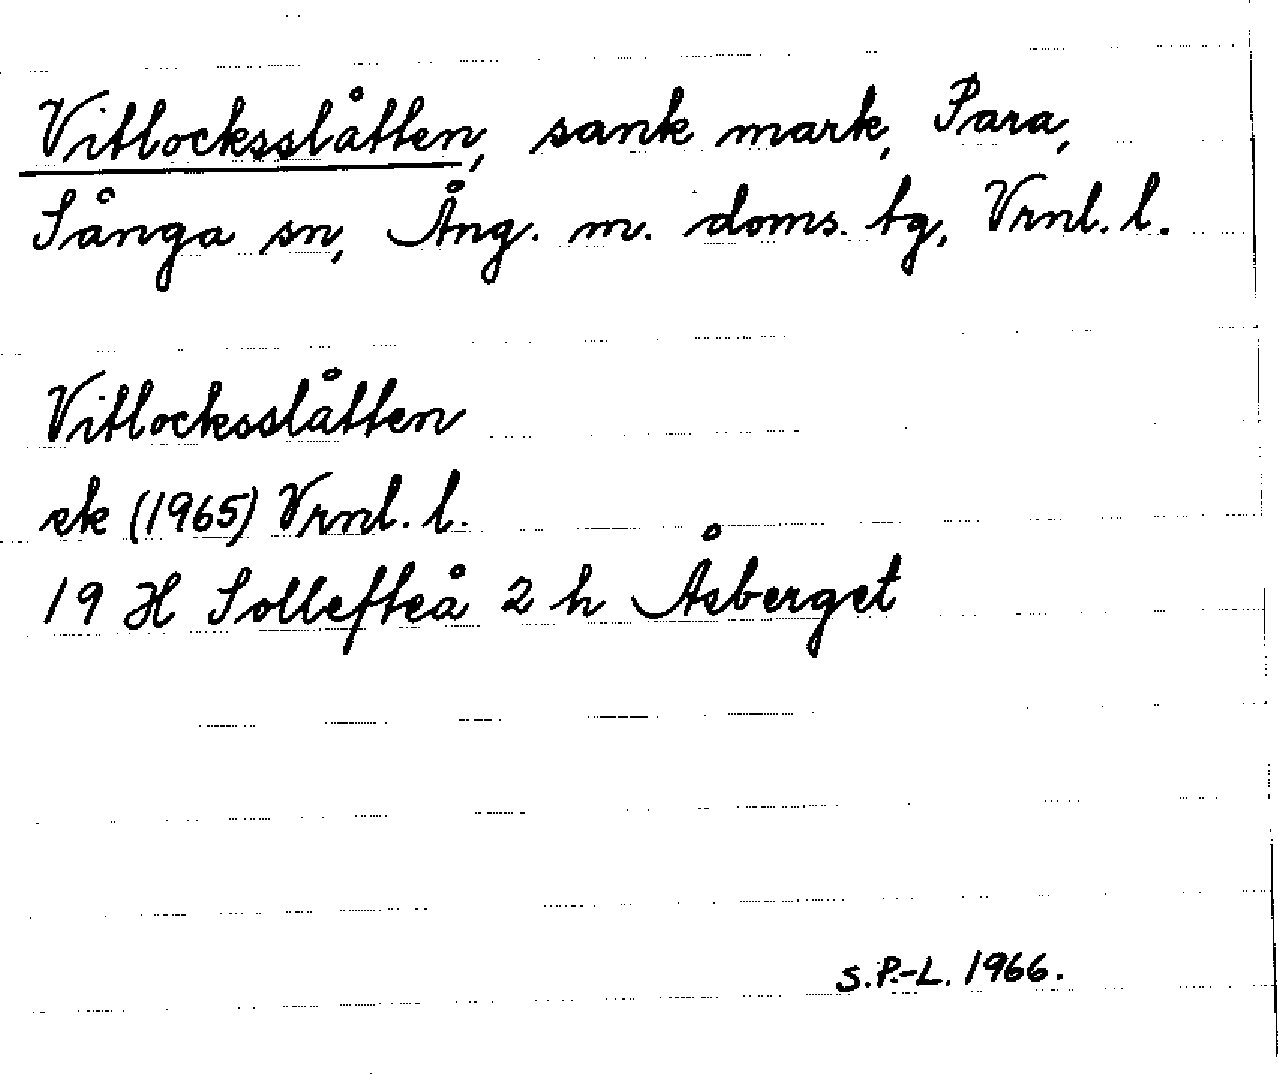 Vitlocksslåtten, sank mark, Para,
Sånga sn, Ång. m. doms. tg, Vrnl. l.
Vitlocksslåtten
ek (1965) Vrnl. l.
19 H Sollefteå 2 h Åsberget
S.P.-L. 1966.